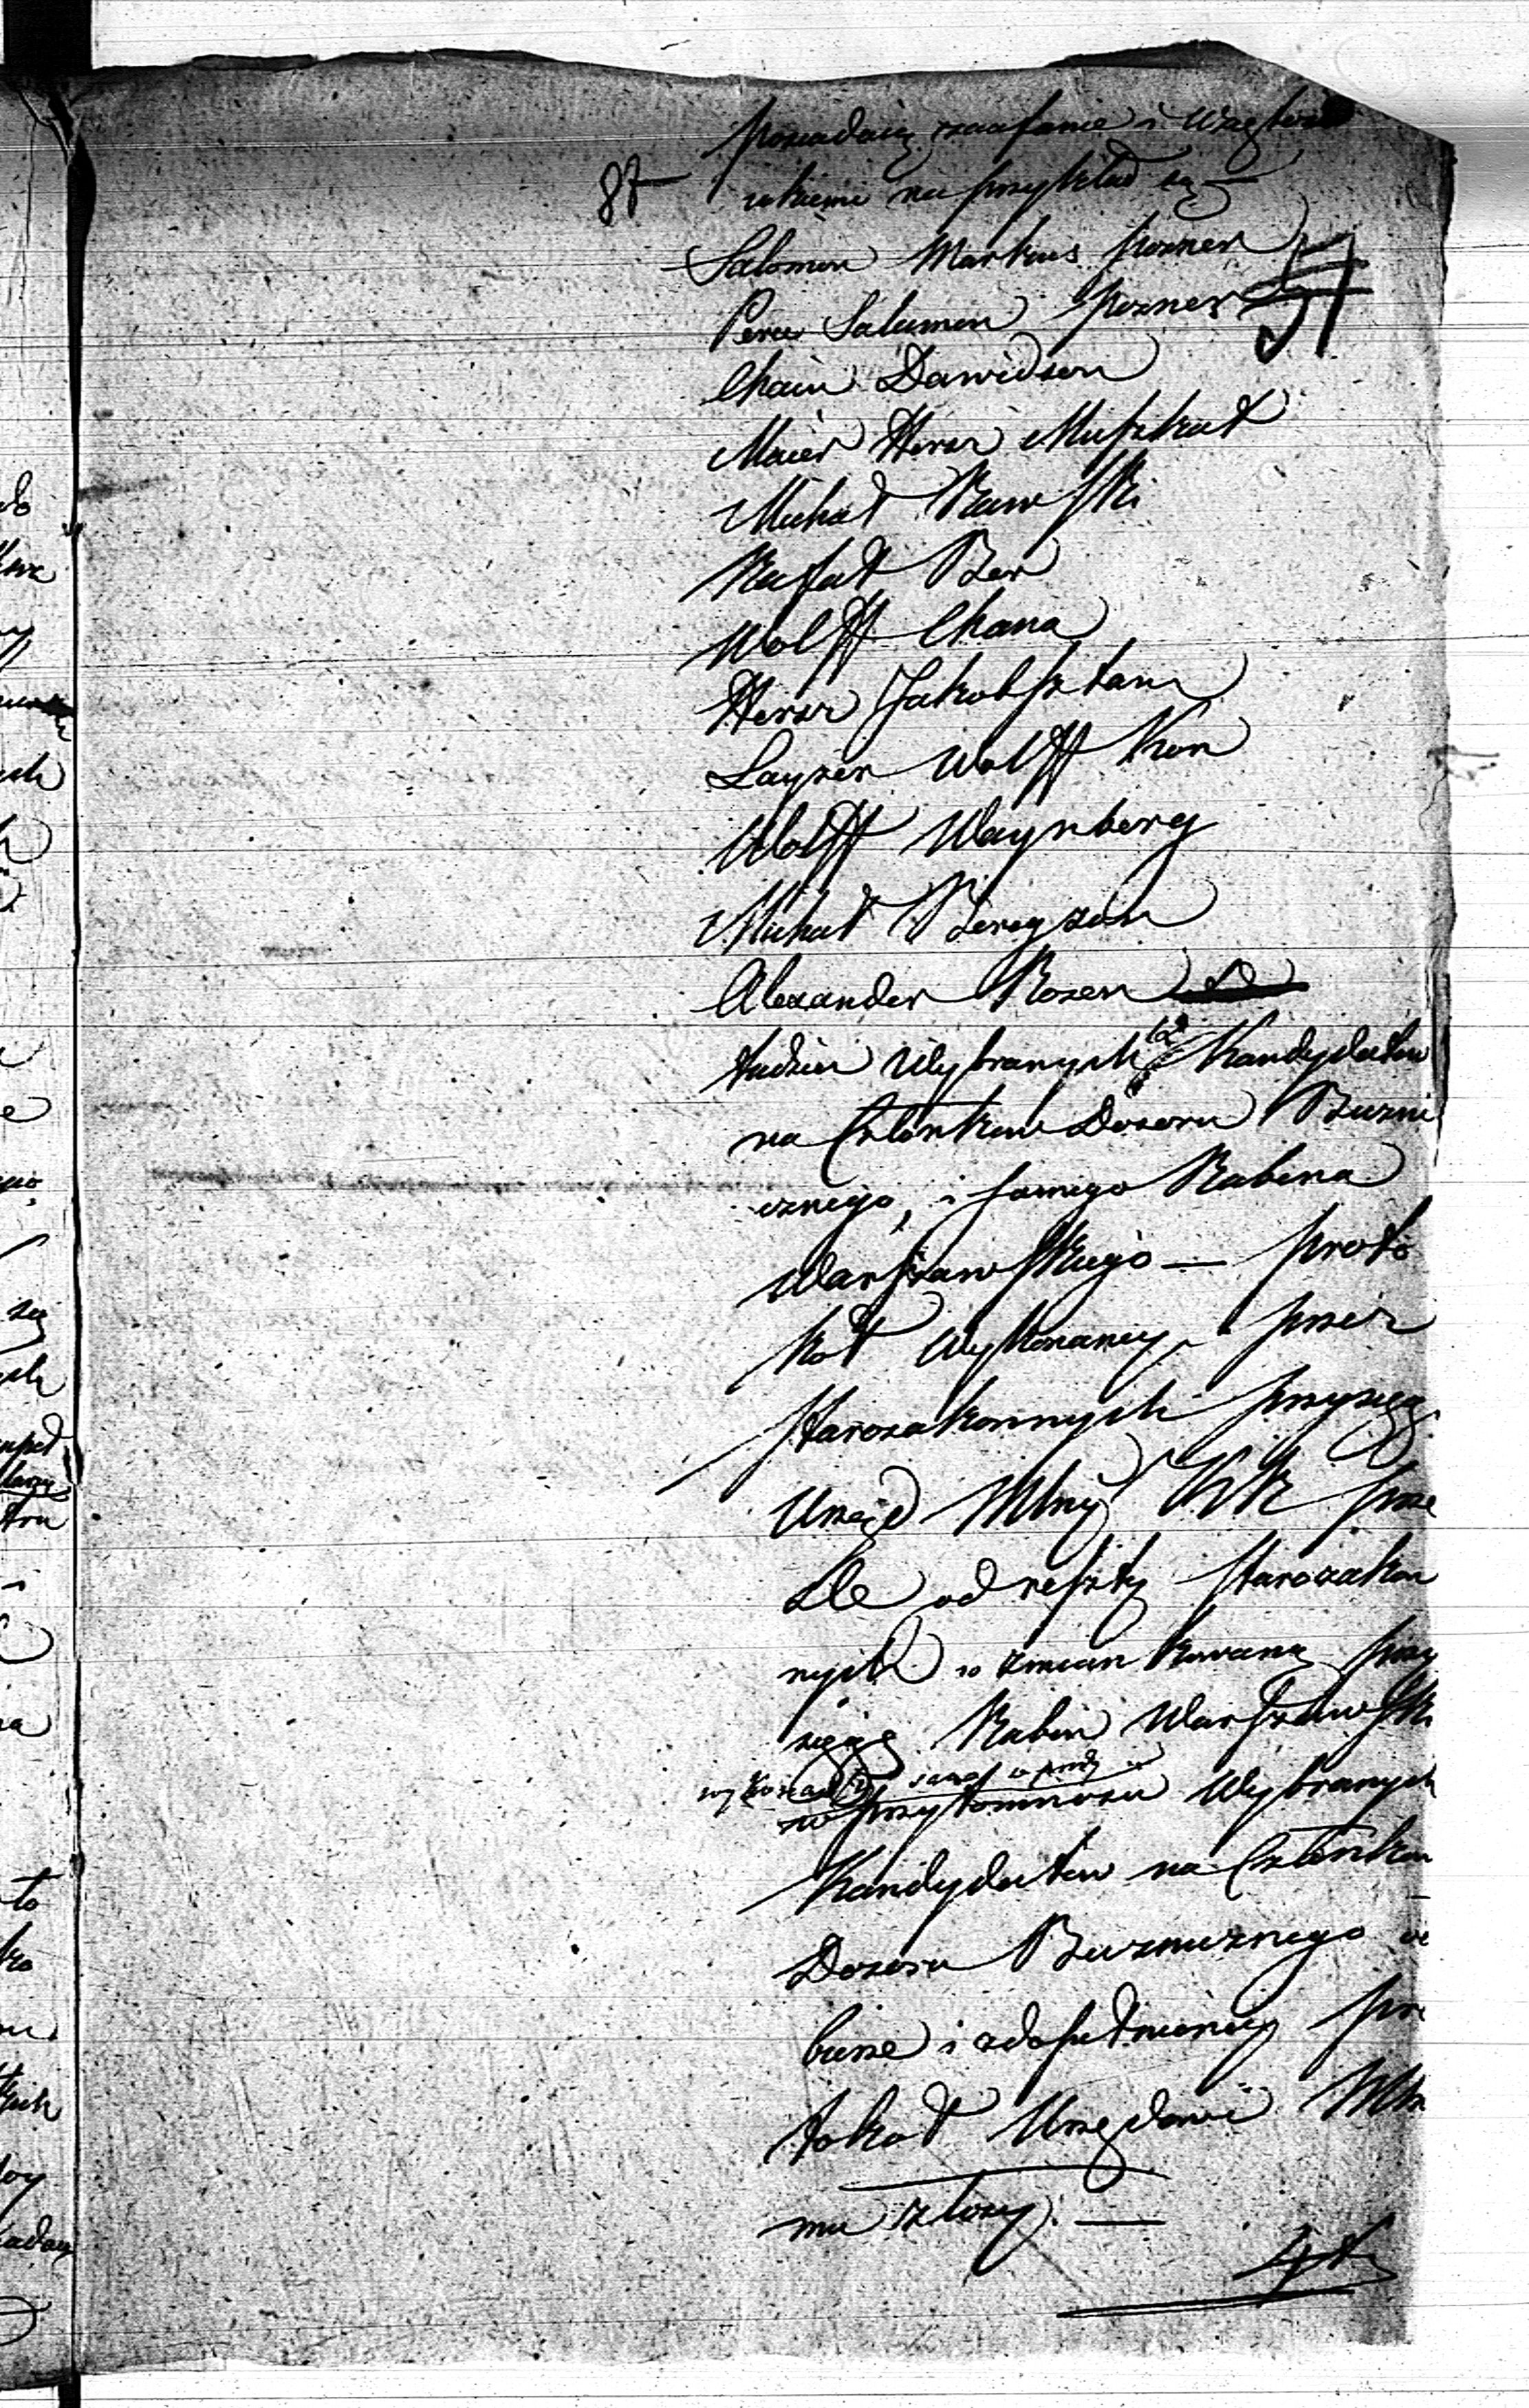 posiadaią zaufanie i wzglęD
87 iakiemi na przykład są —
Salomon Markus Pozner
51
Perec Salomon Pozner
Chaim Dawidson
Maier Hersz Muszkat
Michał Rawski
Rafał Ber
Wolff Chana
Hersz Jakobsztam
Layzer Wolff Kon
Wolff Waynberg
Michał Bergzon
Alexander Rozen
tudzież Wybranych 12 Kandydatów
na Członków Dozoru Bużni
cznego, i samego Rabina
Warszawskiego — proto
kół Wykonaney przez
Starozakonnych przysięg
Urząd Mlny K K prze
śle od reszty Starozakon
nych w zmiankowaną przy
sięgę Rabin Warszawski
w przytomności Wybranych
Kandydatów na Członków
Dozoru Bużnicznego
bierze i zdopełnioney pro
tokół Urzędowi Mu
mu złoży. —